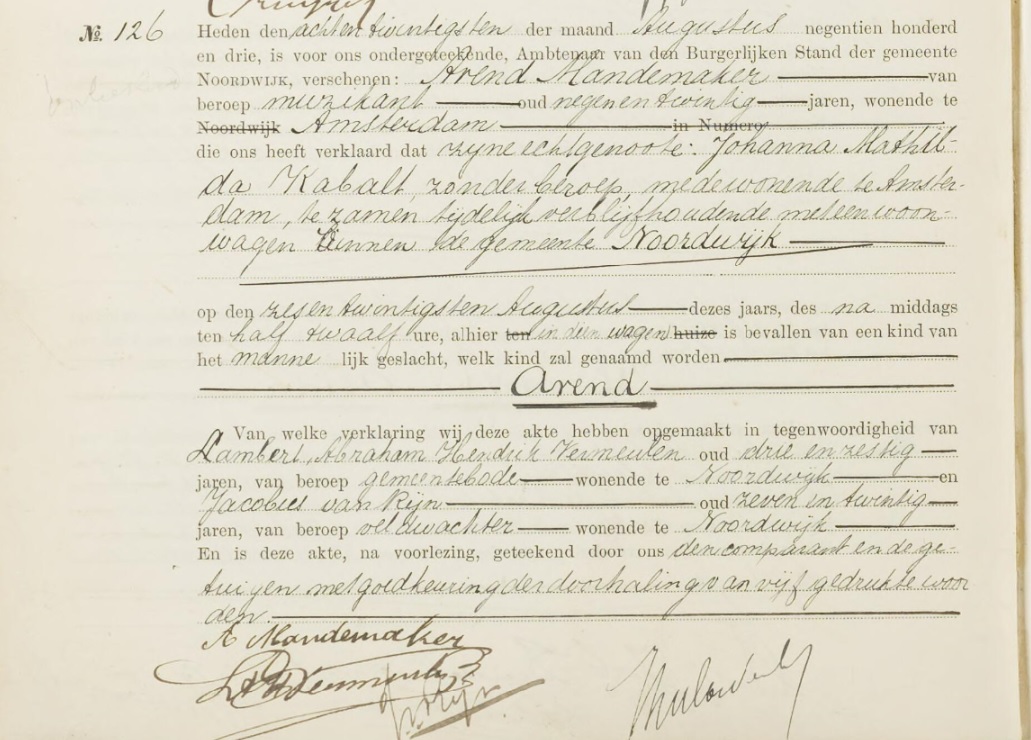 №. 126 Heden den achten twintigsten der maand Augustus negentien honderd
en drie, is voor ons ondergeteekende, Ambtenaar van den Burgerlijken Stand der gemeente
NOORDWIJK, verschenen: Arend Mandemaker van
beroep muzikant oud negenentwintig jaren, wonende te
Noordwijk Amsterdam in Numero
die ons heeft verklaard dat zijne echtgenoote: Johanna Mathil-
da Kabalt, zonder beroep, medewonende te Amster-
dam, te zamen tijdelijk verblijfhoudende met een woon-
wagen binnen de gemeente Noordwijk
op den zesentwintigsten Augustus dezes jaars, des na middags
ten half twaalf ure, alhier ten in dien wagen huize is bevallen van een kind van
het manne lijk geslacht, welk kind zal genaamd worden
Arend
Van welke verklaring wij deze akte hebben opgemaakt in tegenwoordigheid van
Lambert, Abraham Hendrik Vermeulen oud drie en zestig
jaren, van beroep gemeentebode wonende te Noordwijk en
Jacobus van Rijn oud zeven en twintig
jaren, van beroep veldwachter wonende te Noordwijk
En is deze akte, na voorlezing, geteekend door ons den comparant en de ge-
tuigen met goedkeuring der doorhaling van vijf gedrukte woor
den.
A Mandemaker
LAH Vermeulen
J v Rijn